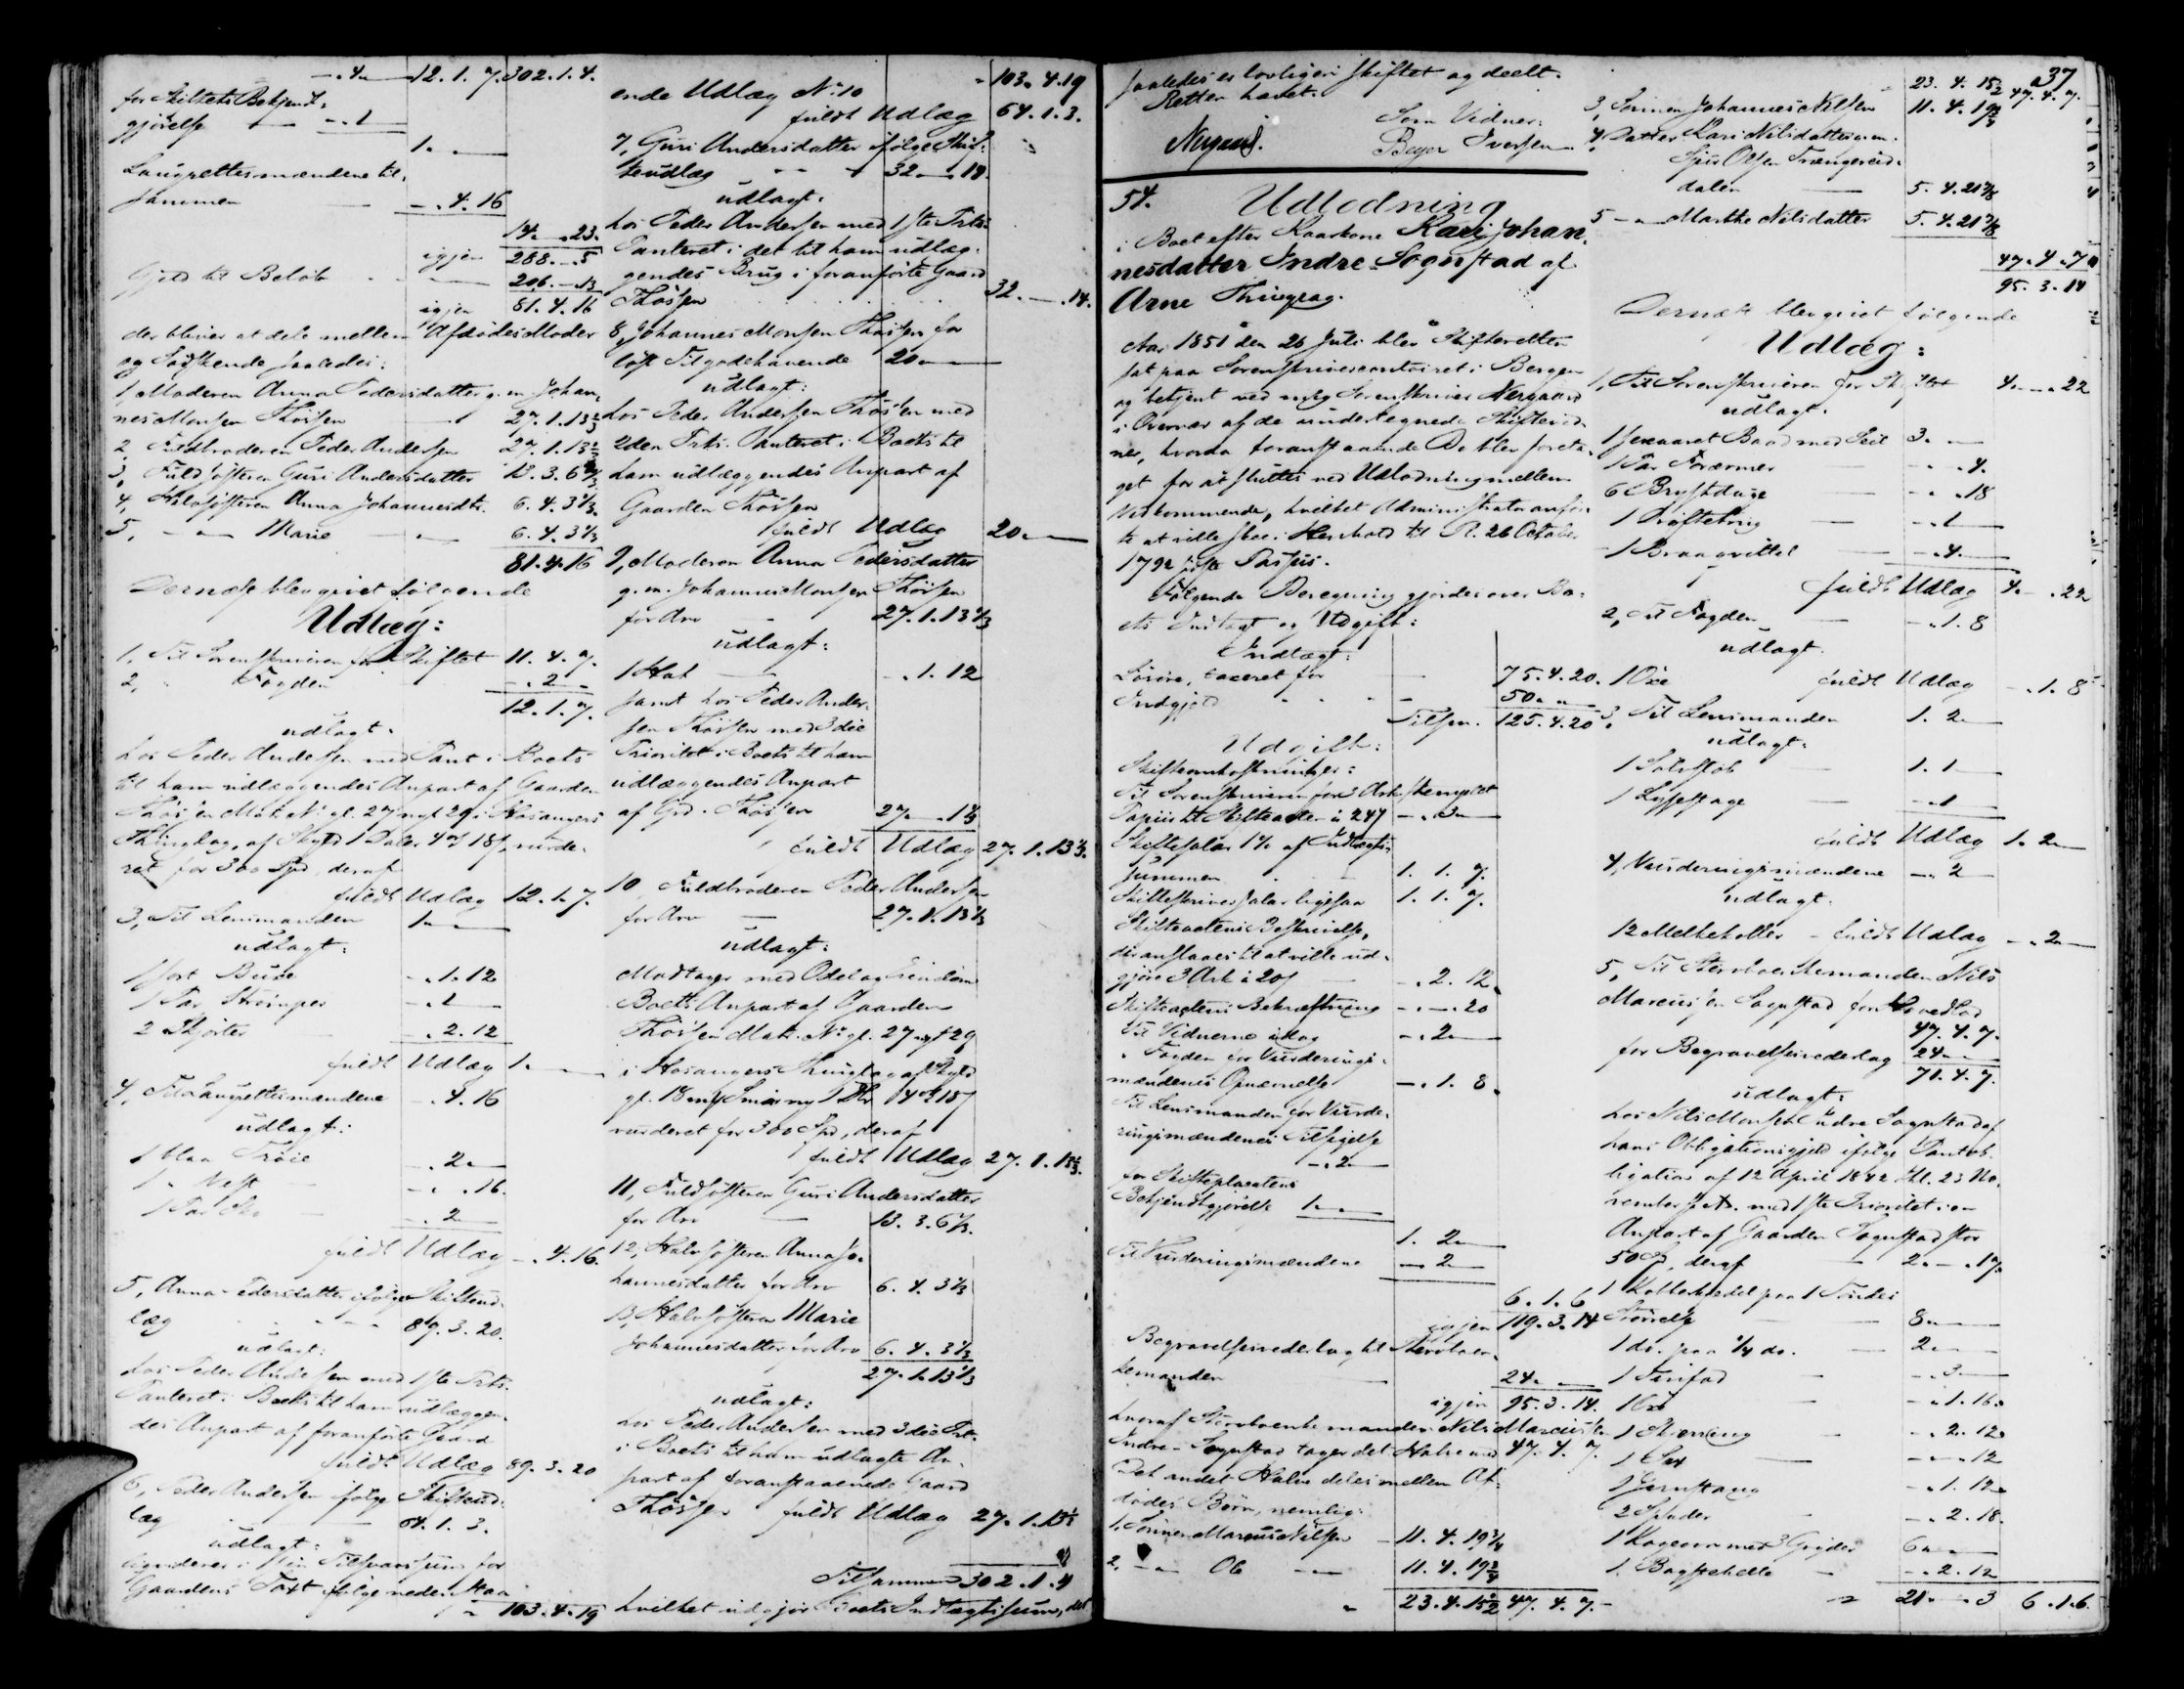 -.4.- 12.1.7. 302.1.4.
for Skiftets Bekjendt-
gjörelse -.1
1.-
Laugrettesmændene til-
sammen -.4.16
14.-.23.
igjen 288.-.5
Gjeld til Beløb 206.-.13
igjen 81.4.16
der bliver at dele mellem Afdødes Moder
og Sødskende saaledes:
1, Moderen Anna Pedersdatter g. m. Johan-
nes Monsen Thøssen 27.1.13⅓
2, Fuldbroderen Peder Andersen 27.1.13⅓
3, Fuldsøsteren Guri Andersdatter 13.3.6⅔
4, Halvsøsteren Anna Johannesdtr. 6.4.3⅓
5, -"- Marie -"- 6.4.3⅓
81.4.16
Dernæst blev gjort følgende
Udlæg:
1, Til Sorenskriveren for Skiftet 11.4.7.
2, " Fogden -.2.-
12.1.7.
udlagt:
hos Peder Andersen med Pant i Boets
til ham udlæggendes Anpart af Gaarden
Thøssen Mat. No gl. 27 nyt 29 i Hosangers
Thinglag, af Skyld 1 Daler 4 ort 18 s, vurde-
ret for 300 Spd, deraf
fuldt Udlæg 12.1.7.
3, Til Lensmanden 1.-
udlagt:
1 sort Buxe -.1.12
1 Par Strømper -.1
2 Skjorter -.2.12
fuldt Udlæg 1.-
4, Til Laugrettesmændene -.4.16
udlagt:
1 blaa Trøie -.2.-
1 " Vest -.-.16.
1 Par Sko -.2.-
fuldt Udlæg -.4.16.
5, Anna Pedersdatter ifølge Skifteud-
læg 89.3.20.
udlagt:
hos Peder Andersen med 1ste Prts.
Panteret i Boets til ham udlæggen-
des Anpart af foranførte Gaard
fuldt Udlæg 89.3.20
6, Peder Andersen ifølge Skifteud-
læg 64.1.3.
udlagt:
Gaardens Taxt ifølge nedenstaa
" 103.4.19
ende Udlæg No 10 " 103.4.19
fuldt Udlæg 64.1.3.
7, Guri Andersdatter ifølge Skif-
teudlæg 32.-.18.
udlagt:
hos Peder Andersen med 1ste Prts.
Panteret i det til ham udlæg-
gendes Brug i foranførte Gaard
Thøssen 32.-.14.
8, Johannes Monsen Thøssen for
løst Tilgodehavende 20.-
udlagt:
hos Peder Andersen Thøssen med
2den Prts. Panteret i Boets til
ham udlæggendes Anpart af
Gaarden Thøssen
fuldt Udlæg 20.-
9, Moderen Anna Pedersdatter
g. m. Johannes Monsen Thøssen
for Arv 27.1.13⅓
udlagt:
1 Hat -.1.12
samt hos Peder Ander-
sen Thøssen med 3die
Prioritet i Boets til ham
udlæggendes Anpart
af Grd. Thøssen 27.-.1⅓
fuldt Udlæg 27.1.13⅓.
10, Fuldbroderen Peder Andersen
for Arv 27.1.13⅓
udlagt:
Modtager med Odel og Eiendom
Boets Anpart af Gaarden
Thøssen Matr. No gl. 27 nyt 29
i Hosangers Thinglag af Skyld
vurderet for 300 Spd, deraf
fuldt Udlæg 27.1.13⅓.
11, Fuldsøsteren Guri Andersdatter
for Arv 13.3.6⅔.
12, Halvsøsteren Anna Jo-
hannesdatter for Arv 6.4.3⅓
13, Halvsøsteren Marie
Johannesdatter for Arv 6.4.3⅓
27.1.13⅓
udlagt:
hos Peder Andersen med 3die Prt.
i Boets til ham udlagte An-
part af foranstaaende Gaard
Thøssen fuldt Udlæg 27.1.13⅓
Tilsammen 302.1.4
hvilket udgjør Boets Indtægtssum, det
saaledes er lovligen skiftet og deelt.
Retten hævet.
Som Vidner:
Nergaard. Beyer Iversen
54. Udlodning
i Boet efter Kaarkone Kari Johan-
nesdatter Indre-Sognstad af
Arne Thinglag.
Aar 1851 den 26 Juli blev Skifteretten
sat paa Sorenskrivercontoiret i Bergen
og betjent ved mig Sorenskriver Nergaard
i Overvær af de undertegnede Skiftevid-
ner, hvorda foranstaaende Bo blev foreta-
get for at sluttes ved Udlodning mellem
Vedkommende, hvilket Administrator anfør-
te at ville skee i Henhold til R. 26 October
1792 sidste Passus.
Følgende Beregning gjordes over Bo-
ets Indtægt og Udgift:
Indtægt:
Løsøre, taxeret for 75.4.20.
Indgjeld 50.-.-
Tilsm. 125.4.20
Udgift:
Skifteomkostninger:
Til Sorenskriveren for 3 Ark stemplet
Papiir til Skifteacten à 24 s -.3.-
Skiftesalær 1% af Indtægts-
summen 1.1.7.
Skifteskriversalær ligesaa 1.1.7.
Skifteactens Beskrivelse,
der anslaaes til at ville ud-
gjøre 3 Ark à 20 s -.2.12.
Skifteactens Bekræftning -.-.20
Til Vidnerne idag -.2.-
" Fogden for Vurderings-
mændenes Opnævnelse -.1.8.
Til Lensmanden for Vurde-
ringsmændenes Tilsigelse
-.2.-
for Skifteplacatens
Bekjendtgjørelse 1.-
1.2.-
Til Vurderingsmændene -.2.-
6.1.6
igjen 119.3.14
Begravelsesvederlag til Stervboen-
kemanden 24.-
igjen 95.3.14.
hvoraf Stervboenkemanden Nils Marcussen
Indre-Sognstad tager det Halve med 47.4.7.
Det andet Halve deles mellem Af-
dødes Børn, nemlig:
1. Sønnen Marcus Nilsen 11.4.19¾
2. -"- Ole -"- 11.4.19¾
" 23.4.15½ 47.4.7.
37
" 23.4.15½ 47.4.7.
3, Sønnen Johannes Nilsen 11.4.19¾
4, Datter Kari Nilsdatter g. m.
Sjur Olsen Trængereid-
dalen 5.4.21⅞
5 -"- Marthe Nilsdatter 5.4.21⅞
47.4.7
95.3.14
Dernæst blev gjort følgende
Udlæg:
1, Til Sorenskriveren for Skiftet 4.-.22
udlagt:
1 sexaaret Baad med Seil 3.-
1 Par Forærmer -.-.4.
6 Brystduge -.-.18
-.1
-.4.-
fuldt Udlæg 4.-.22
2, Til Fogden -.1.8
udlagt:
1 Øxe fuldt Udlæg -.1.8
3, Til Lensmanden 1.2.-
udlagt:
1 Sølvstøb 1.1
1 Lyssestage -.1
fuldt Udlæg 1.2.-
4, Vurderingsmændene -.2
udlagt:
12 Melkekoller fuldt Udlæg -.2.-
5, Til Stervboenkemanden Nils
Marcussen Sognstad for Hovedlod
47.4.7.
for Begravelsesvederlag 24.-
71.4.7.
udlagt:
hos Nils Monsen Indre Sognstad af
hans Obligationsgjeld ifølge Pantob-
ligation af 12 April 1842 thl. 23 No-
vember s. A. med 1ste Prioritet i en
Anpart af Gaarden Sognstad stor
50 Spd, deraf 2.-.17.
1 Kobberkjedel paa 1 Tøndes
Størrelse 8.-
1 do. paa ¼ do. 2.-
-.3.-
-.1.16.
-.2.12.
-.-.12
1 Jernstang -.1.12.
2 Spader -.2.18.
1 Kogeovn med 3 Gryder 6.-
1 Bagstehelle -.2.12
" 21.-.3 6.1.6.